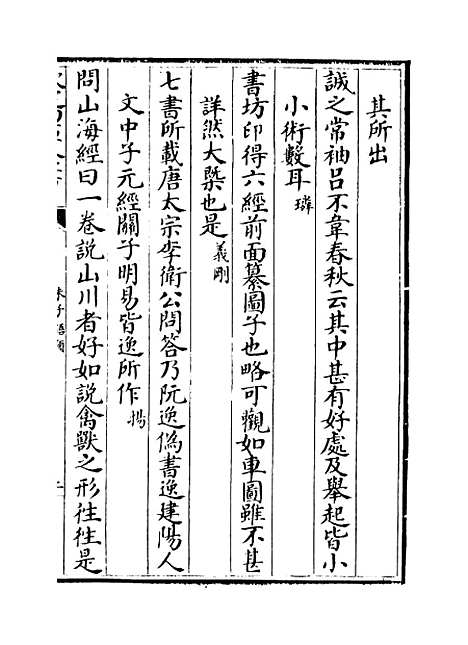 其所出
誠之常袖呂不韋春秋云其中甚有好處及舉起皆小
小術數耳璘
書坊印得六經前面纂圖子也略可觀如車圖雖不甚
詳然大槩也是義剛
七書所載唐太宗李衛公問答乃阮逸偽書逸建陽人
文中子元經關子明易皆逸所作揚
問山海經曰一卷說山川者好如說禽獸之形徃徃是
朱子語類